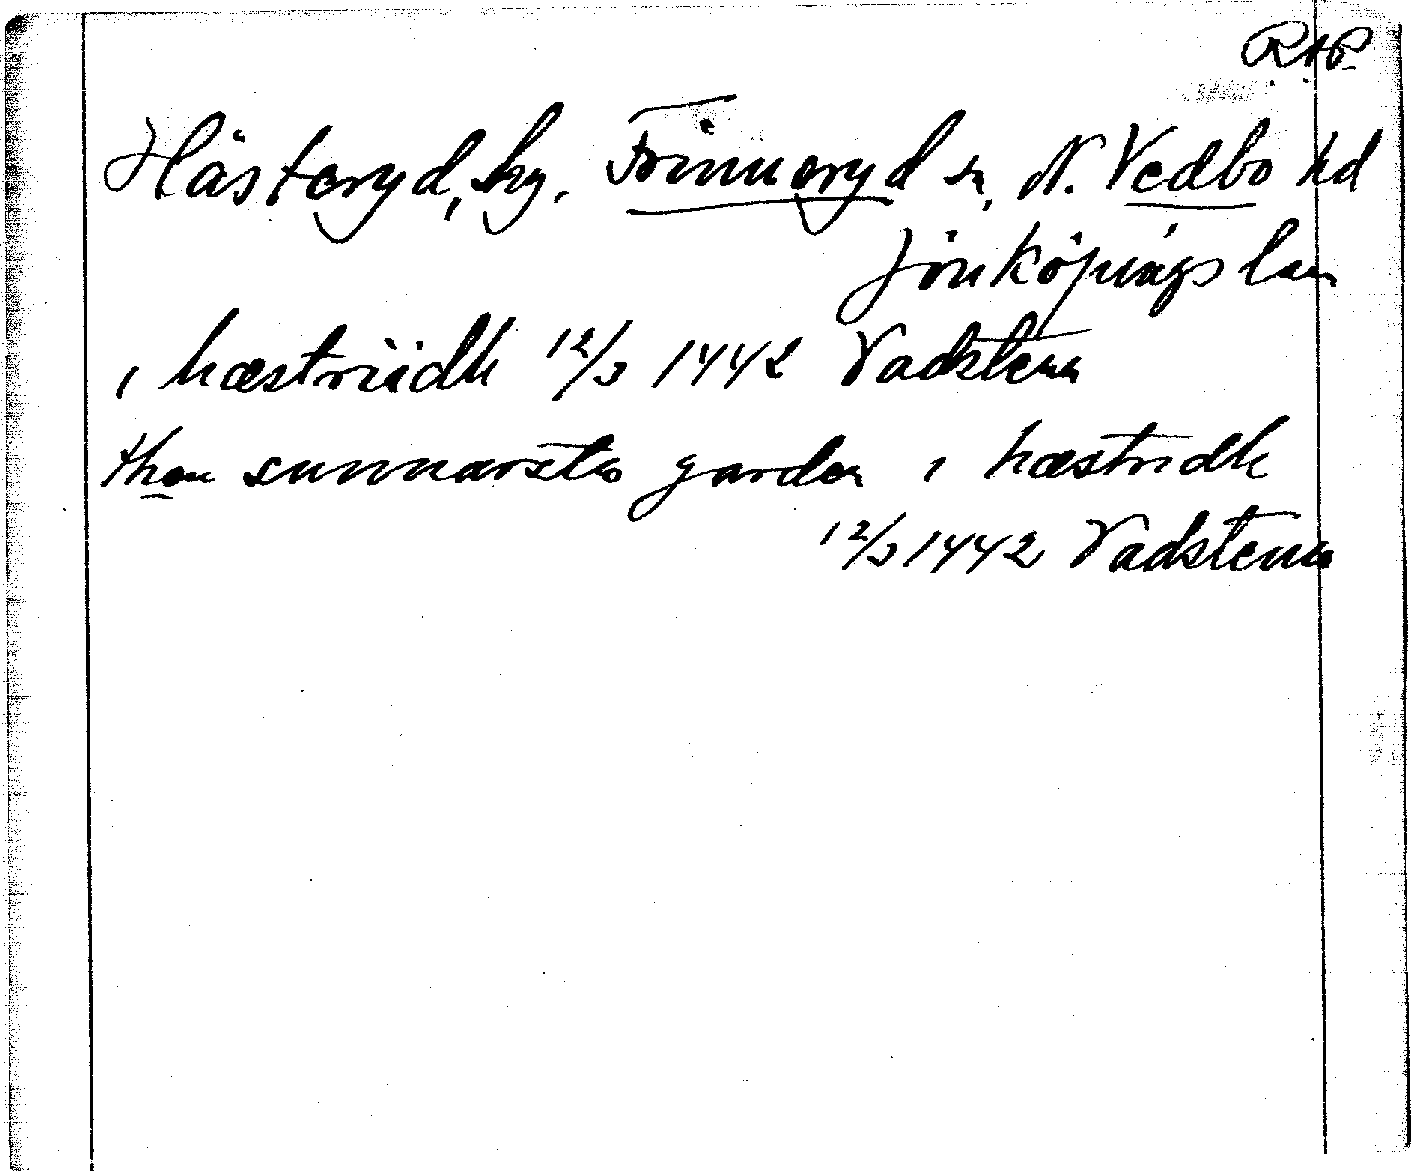 RAP
Hästeryd, by. Frinnaryd sn, N. Vedbo hd
Jönköpings län
i hæstriidh 12/3 1442 Vadstena
then sunnarsta garden i hæstridh
12/3 1442 Vadstena